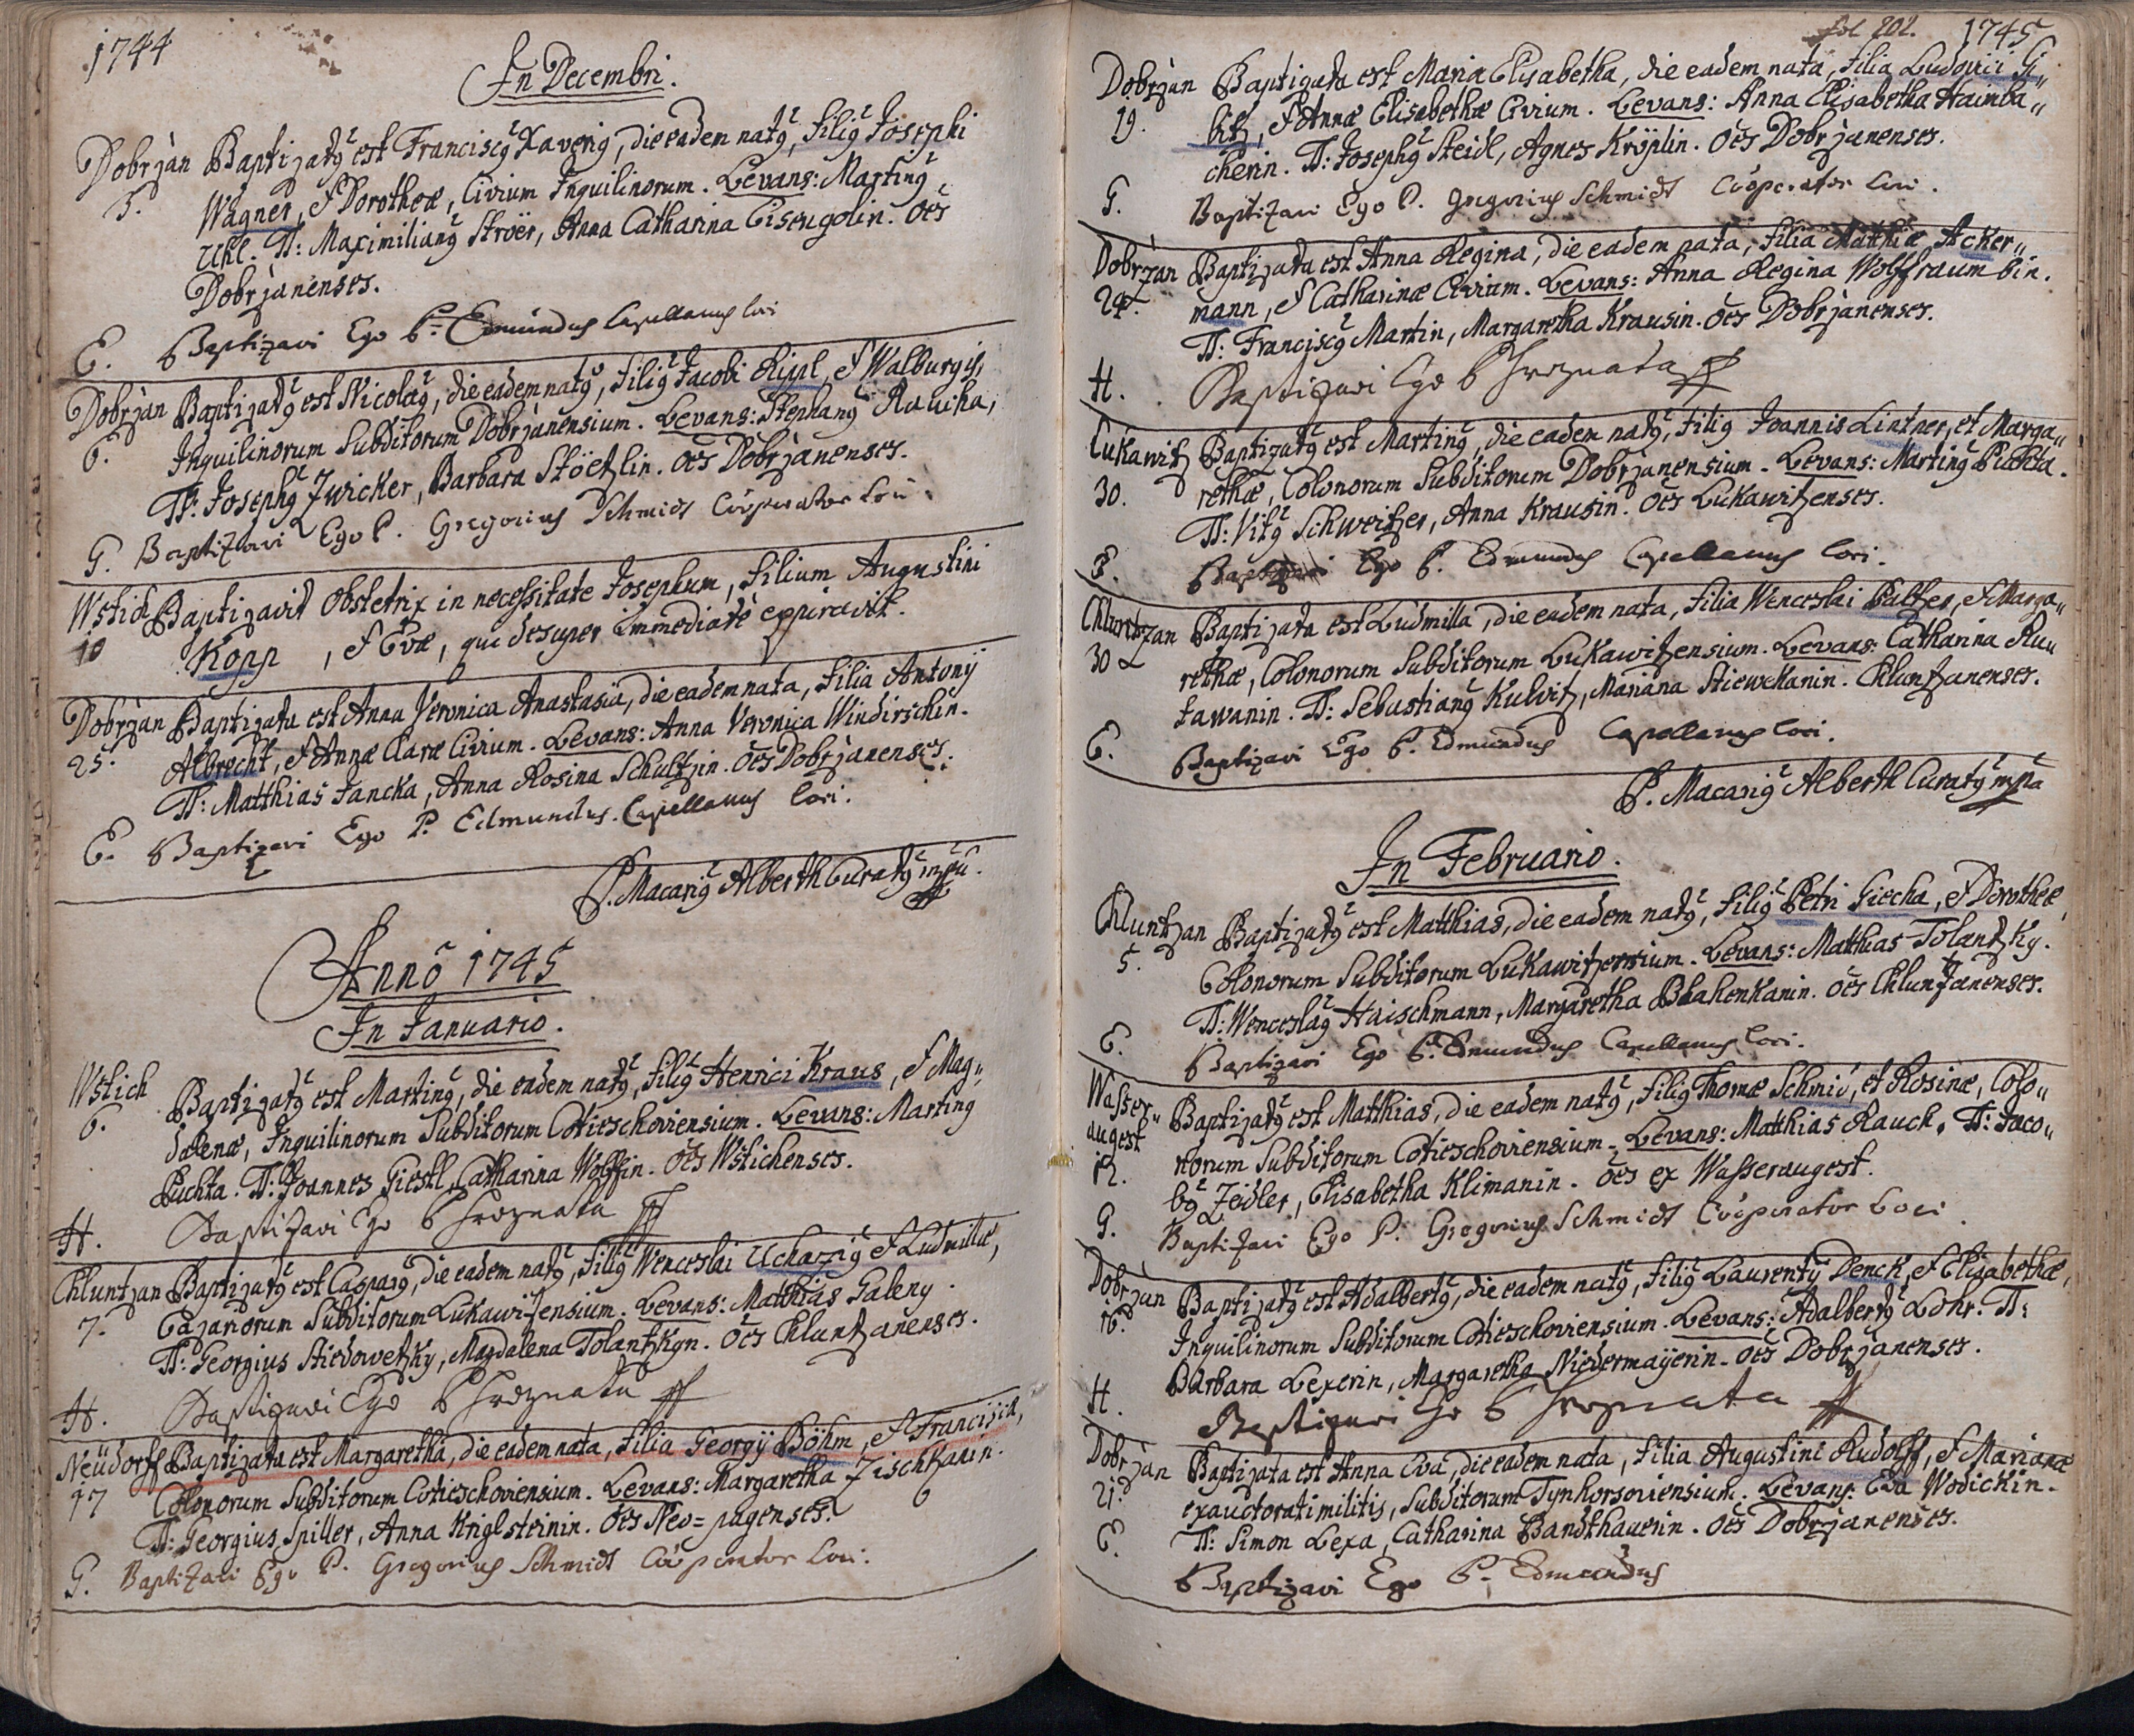 1744
In Decembri.
Dobrzan Baptizatꝰ est Franciscꝰ Xaverꝰ, die eadem natꝰ, Filiꝰ Josephi
3. Wagner, & Dorotheæ, Civium Inquilinorum. Levans: Martinꝰ
Uhl. TT: Maximilianꝰ Ströer, Anna Catharina Eisengolin. Oes
Dobrzanenses.
E. Baptizavi Ego P. Edmundus Capellanus loci
Dobrzan Baptizatꝰ est Nicolaꝰ, die eadem natꝰ, Filiꝰ Jacobi Rippl, & Walburgis,
6. Inquilinorum Subditorum Dobrzanensium. Levans: Stephanꝰ Raucha,
TT: Josephꝰ Zwicker, Barbara Stöetzlin. Oes Dobrzanenses.
G. Baptizavi Ego P. Gregorius Schmidt Cooperator Loci.
Wstich Baptizavit Obstetrix in necessitate Josephum, Filium Augustini
10 Kopp, & Evæ, qui desuper immediatè expiravit.
Dobrzan Baptizata est Anna Veronica Anastasia, die eadem nata, Filia Antonÿ
25. Albrecht, & Annæ Claræ Civium. Levans: Anna Veronica Windirschin.
TT: Matthias Jancka, Anna Rosina Schultzin. Oes Dobrzanenses.
E. Baptizavi Ego P. Edmundus Capellanus loci.
P. Macariꝰ Alberth Curatꝰ mpria
Annô 1745
In Januario.
Wstich Baptizatꝰ est Martinꝰ, die eadem natꝰ, Filiꝰ Henrici Kraus, & Mag„
6. dalenæ, Inquilinorum Subditorum Cotieschoviensium. Levans: Martinꝰ
Puchta. TT: Joannes Giestl, Catharina Wolffin. Oes Wstichenses.
H. Baptizavi Ego P Hroznata
Chluntzan Baptizatꝰ est Casparꝰ, die eadem natꝰ, Filiꝰ Wenceslai Ucharziꝰ & Ludmillæ,
7. Cazariorum Subditorum Lukawitzensium. Levans: Matthias Galeny.
TT: Georgius Stiedowetzky, Magdalena Tolantzkyn. Oes Chluntzanenses.
H. Baptizavi Ego P Hroznata
Neüdorff Baptizata est Margaretha, die eadem nata, Filia Georgÿ Böhm, & Franciscæ,
17 Colonorum Subditorum Cotieschoviensium. Levans: Margaretha Zischkanin.
TT: Georgius Spiller, Anna Kriglsteinin. Oes Neo=pagenses.
G. Baptizavi Ego P. Gregorius Schmidt Cooperator Loci.
fol 202. 1745
Dobrzan Baptizata est Maria Elisabetha, die eadem nata, Filia Ludovici Gi„
19. bitz, & Annæ Elisabethæ Civium. Levans: Anna Elisabetha Haimba„
cherin. TT: Josephꝰ Steidl, Agnes Kröplin. Oes Dobrzanenses.
G. Baptizavi Ego P. Gregorius Schmidt Cooperator Loci.
Dobrzan Baptizata est Anna Regina, die eadem nata, Filia Matthiæ Acker„
24. mann, & Catharinæ Civium. Levans: Anna Regina Wolffraumbin.
TT: Franciscꝰ Martin, Margaretha Krausin. Oes Dobrzanenses.
H. Baptizavi Ego P Hroznata
Lukawitz Baptizatꝰ est Martinꝰ, die eadem natꝰ, Filiꝰ Joannis Lintner, et Marga„
30. rethæ, Colonorum Subditorum Dobrzanensium. Levans: Martinꝰ Puchta.
TT: Vitꝰ Schweitzer, Anna Krausin. Oes Lukawitzenses.
E. Baptizavi Ego P. Edmundus Capellanus loci.
Chluntzan Baptizata est Ludmilla, die eadem nata, Filia Wenceslai Paltzer, & Marga„
30 rethæ, Colonorum Subditorum Lukawitzensium. Levans: Catharina Ru„
tawanin. TT: Sebastianꝰ Kulvitz, Mariana Stiewkanin. Chluntzanenses.
E. Baptizavi Ego P. Edmundus Capellanus loci.
P. Macariꝰ Alberth Curatꝰ mpria
In Februario.
Chluntzan Baptizatꝰ est Matthias, die eadem natꝰ, Filiꝰ Petri Giecha, & Dorotheæ,
5. Colonorum Subditorum Lukawitzensium. Levans: Matthias Tolantzky.
TT: Wenceslaꝰ Haischmann, Margaretha Blahenkanin. Oes Chluntzanenses.
E. Baptizavi Ego P. Edmundus Capellanus loci.
Wasser„ Baptizatꝰ est Matthias, die eadem natꝰ, Filiꝰ Thomæ Schmid, et Rosinæ, Colo„
augest norum Subditorum Cotieschoviensium. Levans: Matthias Rauch. TT: Jaco„
12. bꝰ Zeidler, Elisabetha Klimanin. Oes ex Wasseraugest.
G. Baptizavi Ego P. Gregorius Schmidt Cooperator Loci
Dobrzan Baptizatꝰ est Adalbertꝰ, die eadem natꝰ, Filiꝰ Laurentÿ Denck, & Elisabethæ,
16. Inquilinorum Subditorum Cotieschoviensium. Levans: Adalbertꝰ Lohr. TT:
Barbara Lexerin, Margaretha Niedermayerin. Oes Dobrzanenses.
H. Baptizavi Ego P Hroznata
Dobrzan Baptizata est Anna Eva, die eadem nata, Filia Augustini Rudolff, & Marianæ
21. exauctorati militis, Subditorum Tynhorsoviensium. Levans: Eva Wodickin.
E. TT: Simon Lexa, Catharina Bandthauerin. Oes Dobrzanenses.
Baptizavi Ego P. Edmundus